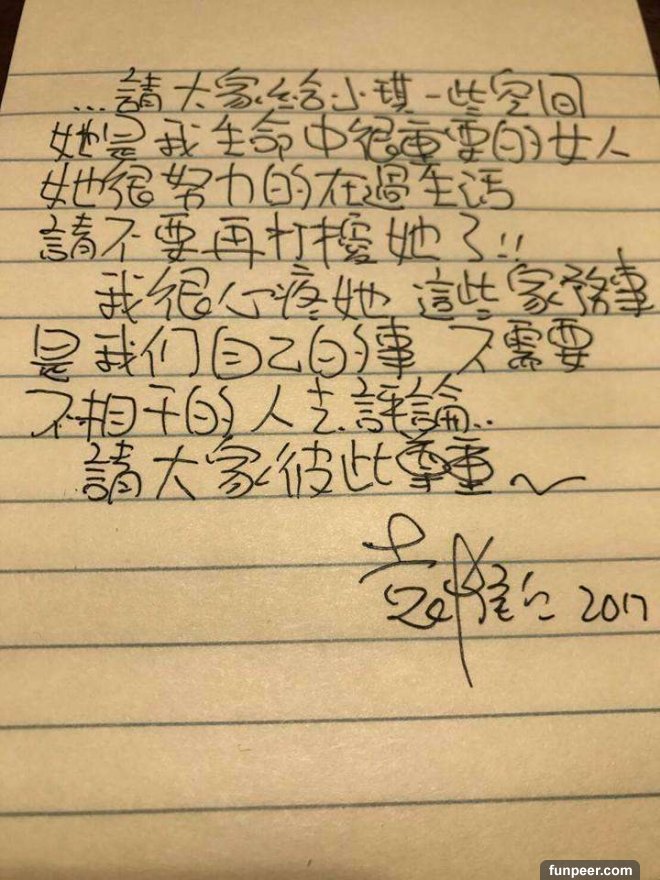 ...請大家給小琪一些空间
她是我生命中很重要的女人
她很努力的在過生活
請不要再打擾她了!!
我很心疼她 這些家務事
是我们自己的事 不需要
不相干的人去評論..
請大家彼此尊重~
2017
funpeer.com